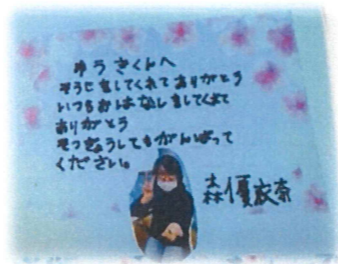 ゆうきくんへ
そうじをしてくれてありがとう
いつもおはなしをしてくれて
ありがとう
そつぎょうしてもがんばって
ください。
森優衣奈